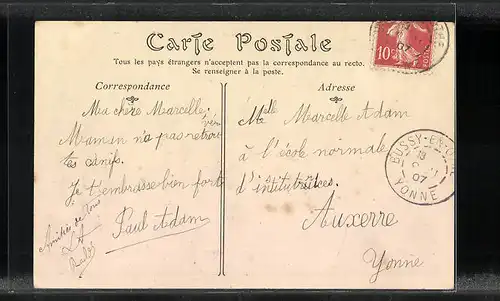 Carte Postale
Tous les pays étrangers n'acceptent pas la correspondance au recto.
Se renseigner à la poste.
Correspondance
Ma chère Marcelle,
Maman n'a pas retrouvé
tes canifs.
Je t'embrasse bien fort
Paul Adam
Amitiés de tous
Adresse
Melle Marcelle Adam
à l'école normale
d'institutrices.
Auxerre
Yonne
10c
BUSSY-EN-OTHE
13
07
YONNE